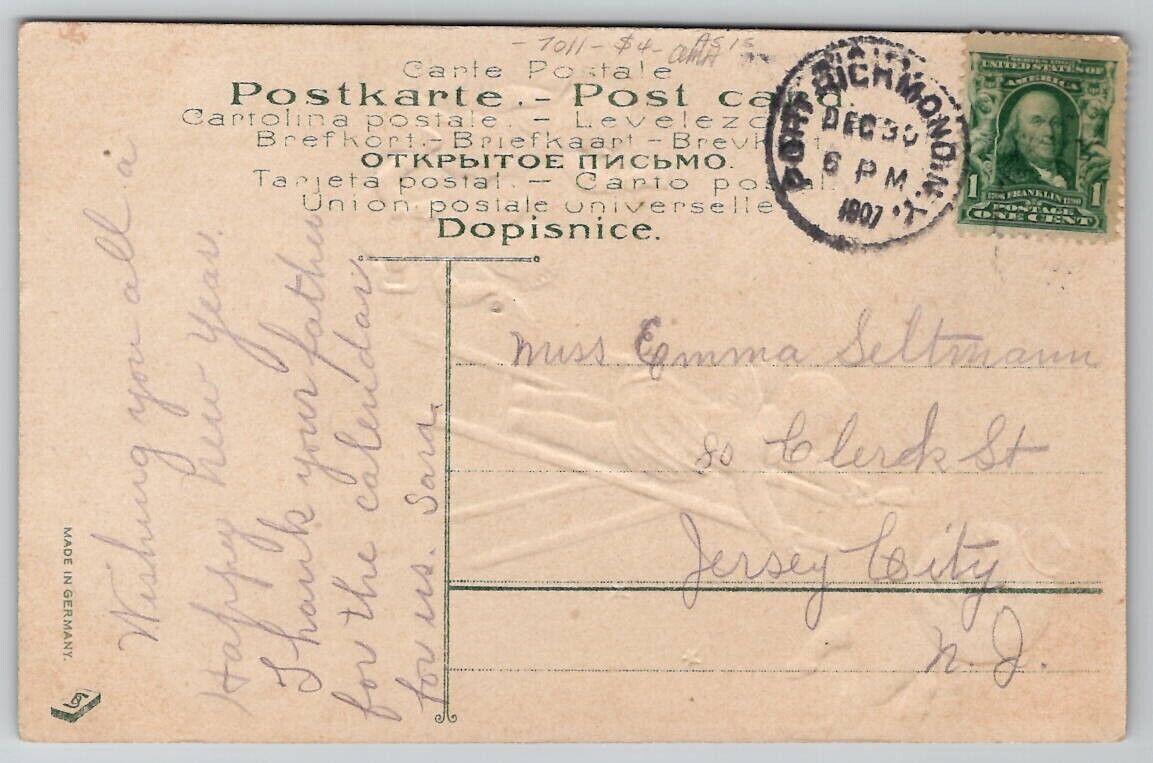 - 7011 - $4 - As is
Carte Postale
Postkarte. - Post card.
Cartolina postale. - Levelezo
Brefkort. - Briefkaart - Brevkort
ОТКРЫТОЕ ПИСЬМО.
Tarjeta postal. - Carto postal.
Union postale universelle
Dopisnice.
PORT RICHMOND. N.Y.
DEC 30
6 PM
1907
SERIES 1902
UNITED STATES OF
AMERICA
1706 FRANKLIN 1790
1 POSTAGE 1
ONE CENT
Wishing you all a
Happy new year.
Thank your father
for the calendar
for us. Sara.
Miss Emma Seltmann
80 Clerck St
Jersey City
N. J.
MADE IN GERMANY.